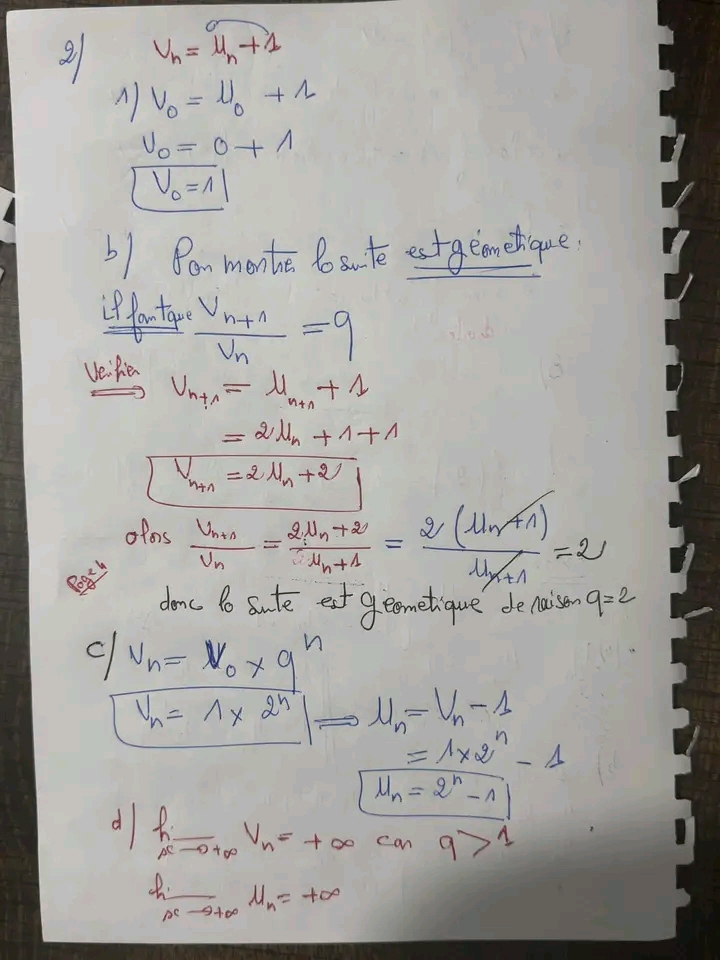 2) Vn = Un + 1
1) V0 = U0 + 1
V0 = 0 + 1
V0 = 1
b) Pour montrer la suite est géométique.
il faut que Vn+1 / Vn = q
Vérifier ⟹ Vn+1 = Un+1 + 1
= 2Un + 1 + 1
Vn+1 = 2Un + 2
alors Vn+1 / Vn = 2Un + 2 / Un + 1 = 2 (Un + 1) / Un + 1 = 2
Page 4
donc la suite est géometique de raison q = 2
c) Vn = V0 × q^n
Vn = 1 × 2^n ⟹ Un = Vn - 1
= 1 × 2^n - 1
Un = 2^n - 1
d) lim x→+∞ Vn = +∞ car q > 1
lim x→+∞ Un = +∞